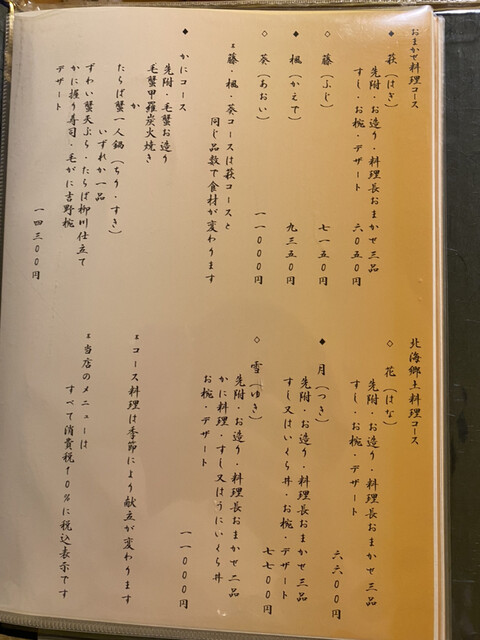 おまかせ料理コース
◆ 萩（はぎ）
先附・お造り・料理長おまかせ三品
すし・お椀・デザート
六〇五〇円
◇ 藤（ふじ）
七一五〇円
◆ 楓（かえで）
九三五〇円
◇ 葵（あおい）
一一〇〇〇円
＊藤・楓・葵コースは萩コースと
同じ品数で食材が変わります
◆ かにコース
先附・毛蟹お造り
毛蟹甲羅炭火焼き
か
たらば蟹一人鍋（ちり・すき）
いずれか一品
ずわい蟹天ぷら・たらば柳川仕立て
かに握り寿司・毛がに吉野椀
デザート
一四三〇〇円
北海郷土料理コース
◇ 花（はな）
先附・お造り・料理長おまかせ三品
すし・お椀・デザート
六六〇〇円
◆ 月（つき）
先附・お造り・料理長おまかせ三品
すし又はいくら丼・お椀・デザート
七七〇〇円
◇ 雪（ゆき）
先附・お造り・料理長おまかせ二品
かに料理・すし又はうにいくら丼
お椀・デザート
一一〇〇〇円
＊コース料理は季節により献立が変わります
＊当店のメニューは
すべて消費税10％に税込表示です